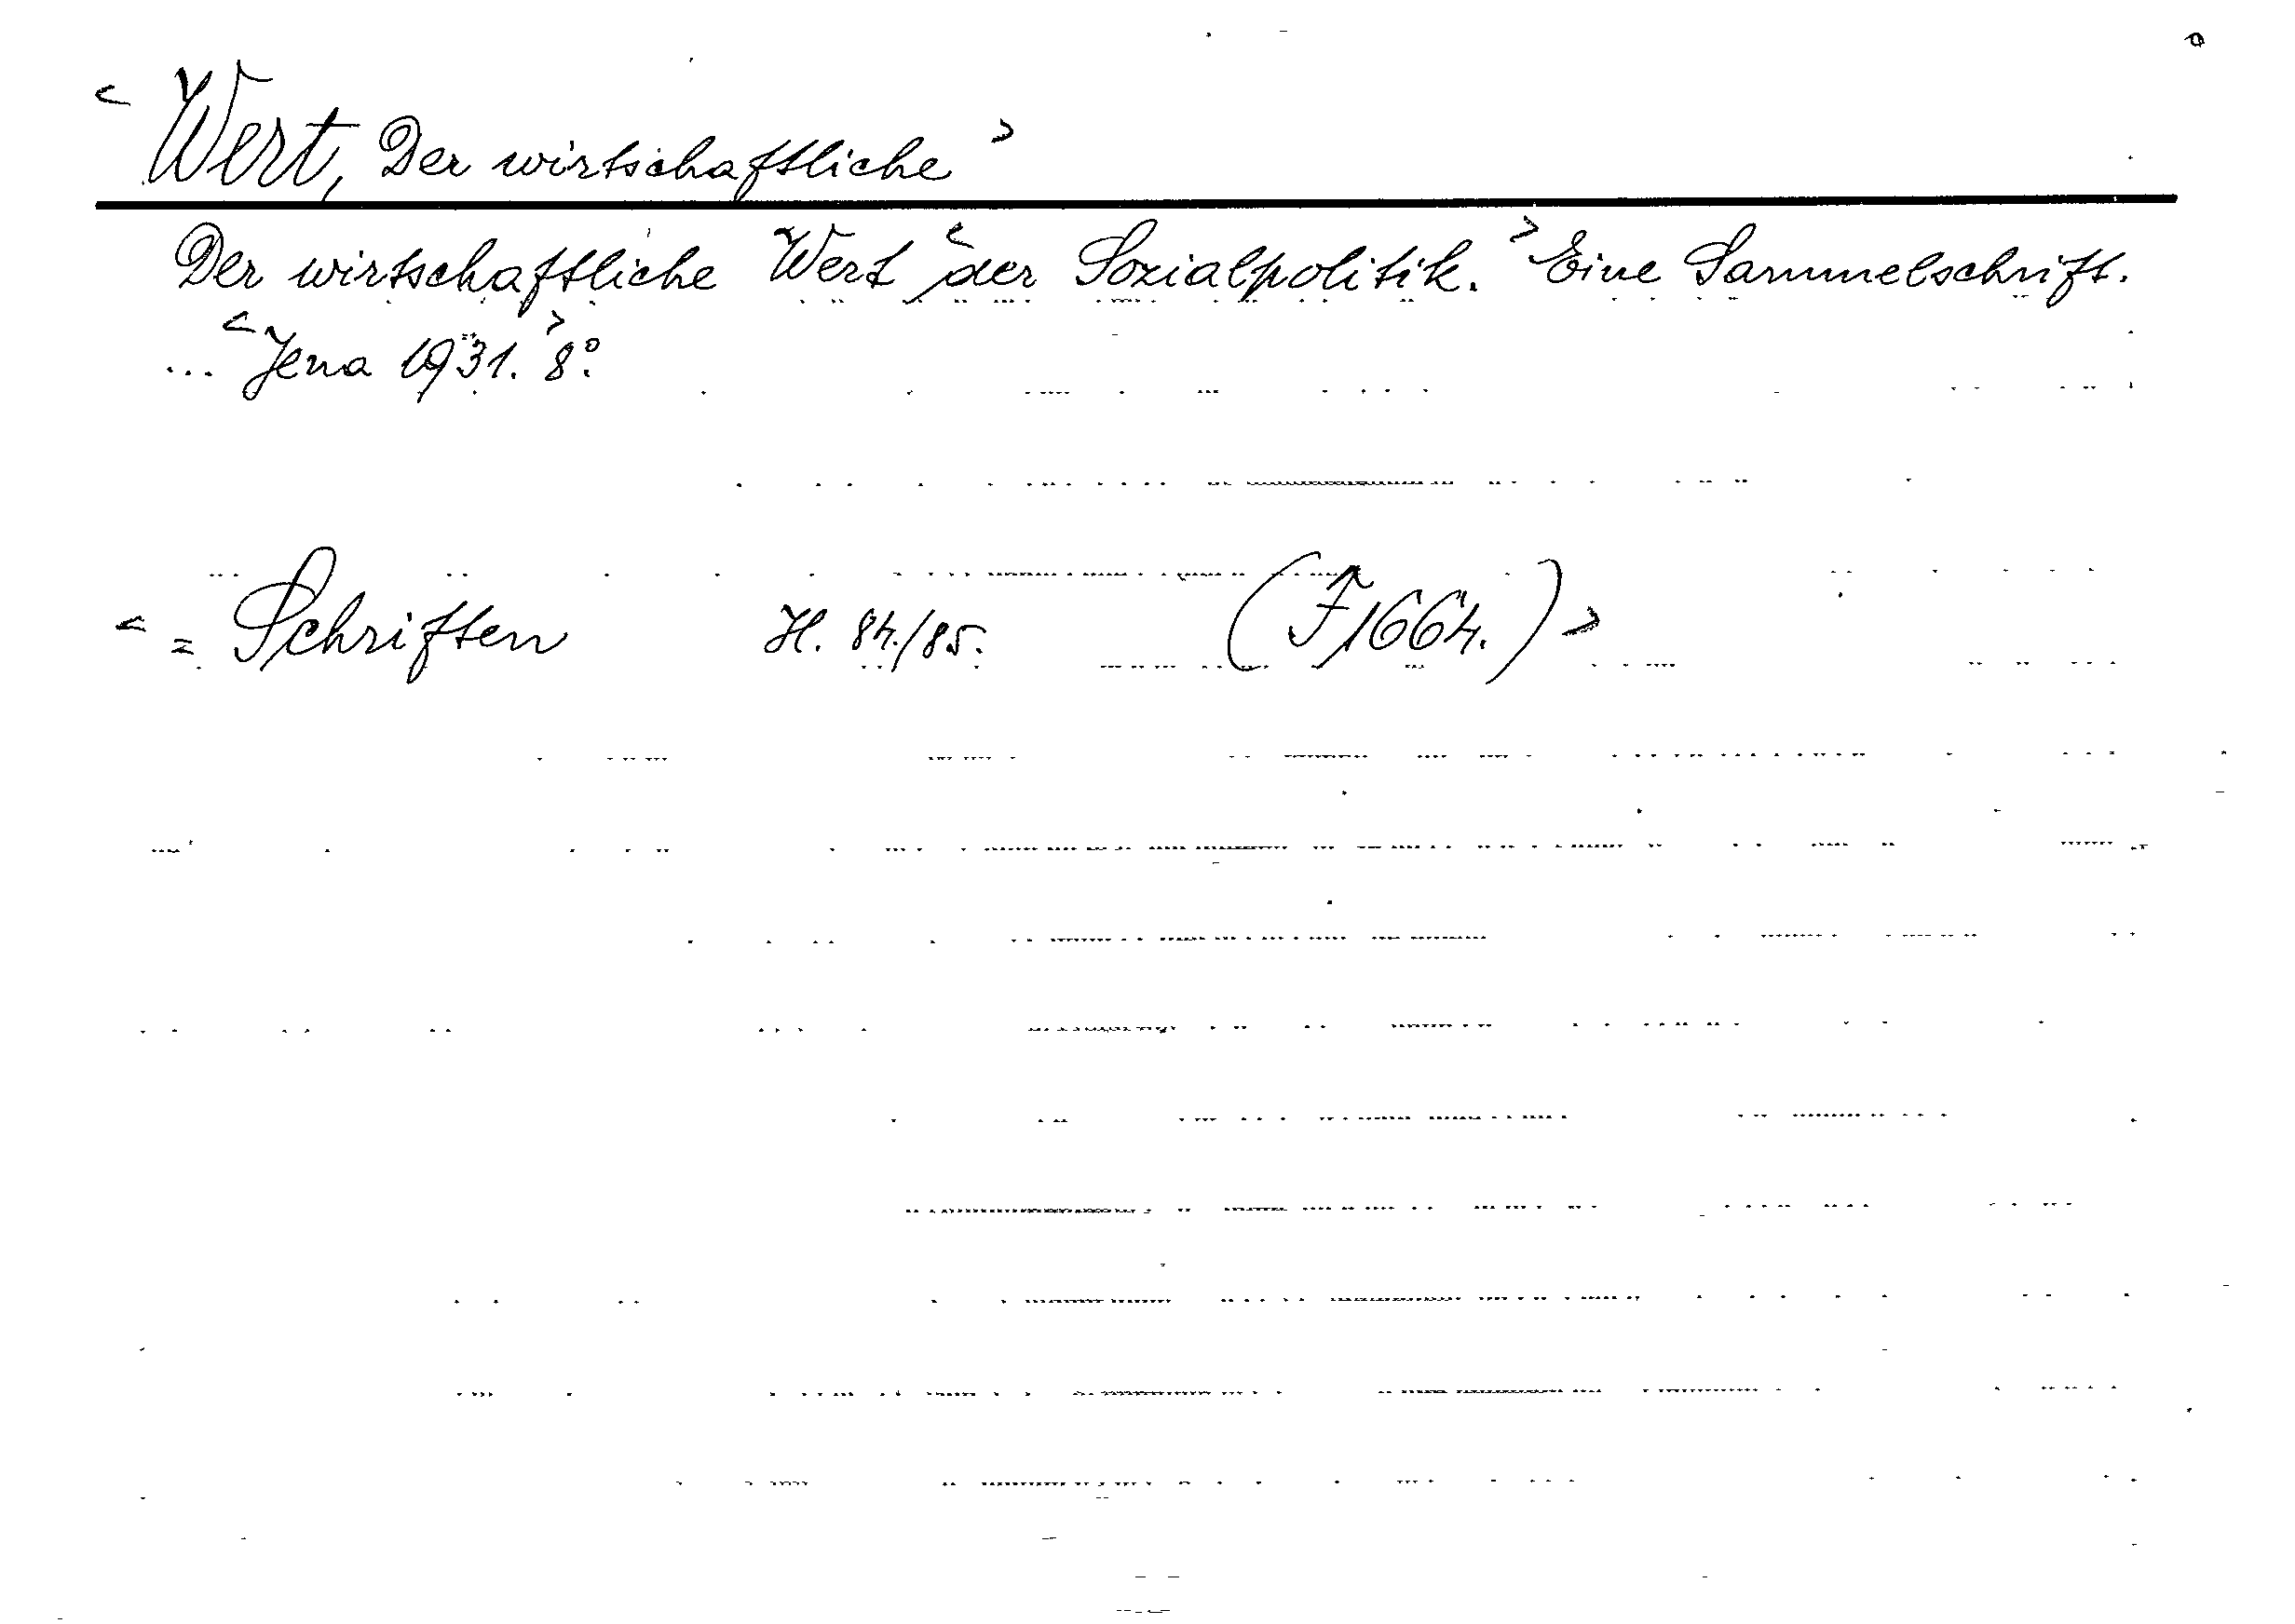 < Wert, Der wirtschaftliche >
Der wirtschaftliche Wert < der Sozialpolitik. > Eine Sammelschrift.
... < Jena 1931. > 8°.
< = Schriften H. 84./85. (F 1664.) >